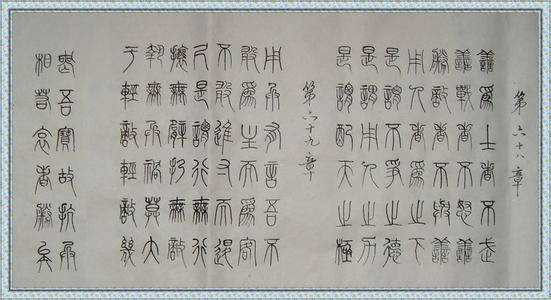 第六十八章
善為士者不武
善戰者不怒善
勝敵者不與善
用人者為之下
是謂不爭之德
是謂用人之力
是謂配天之極
第六十九章
用兵有言吾不
敢為主而為客
不敢進寸而退
尺是謂行無行
攘無臂扔無敵
執無兵禍莫大
于輕敵輕敵幾
喪吾寶故抗兵
相若哀者勝矣